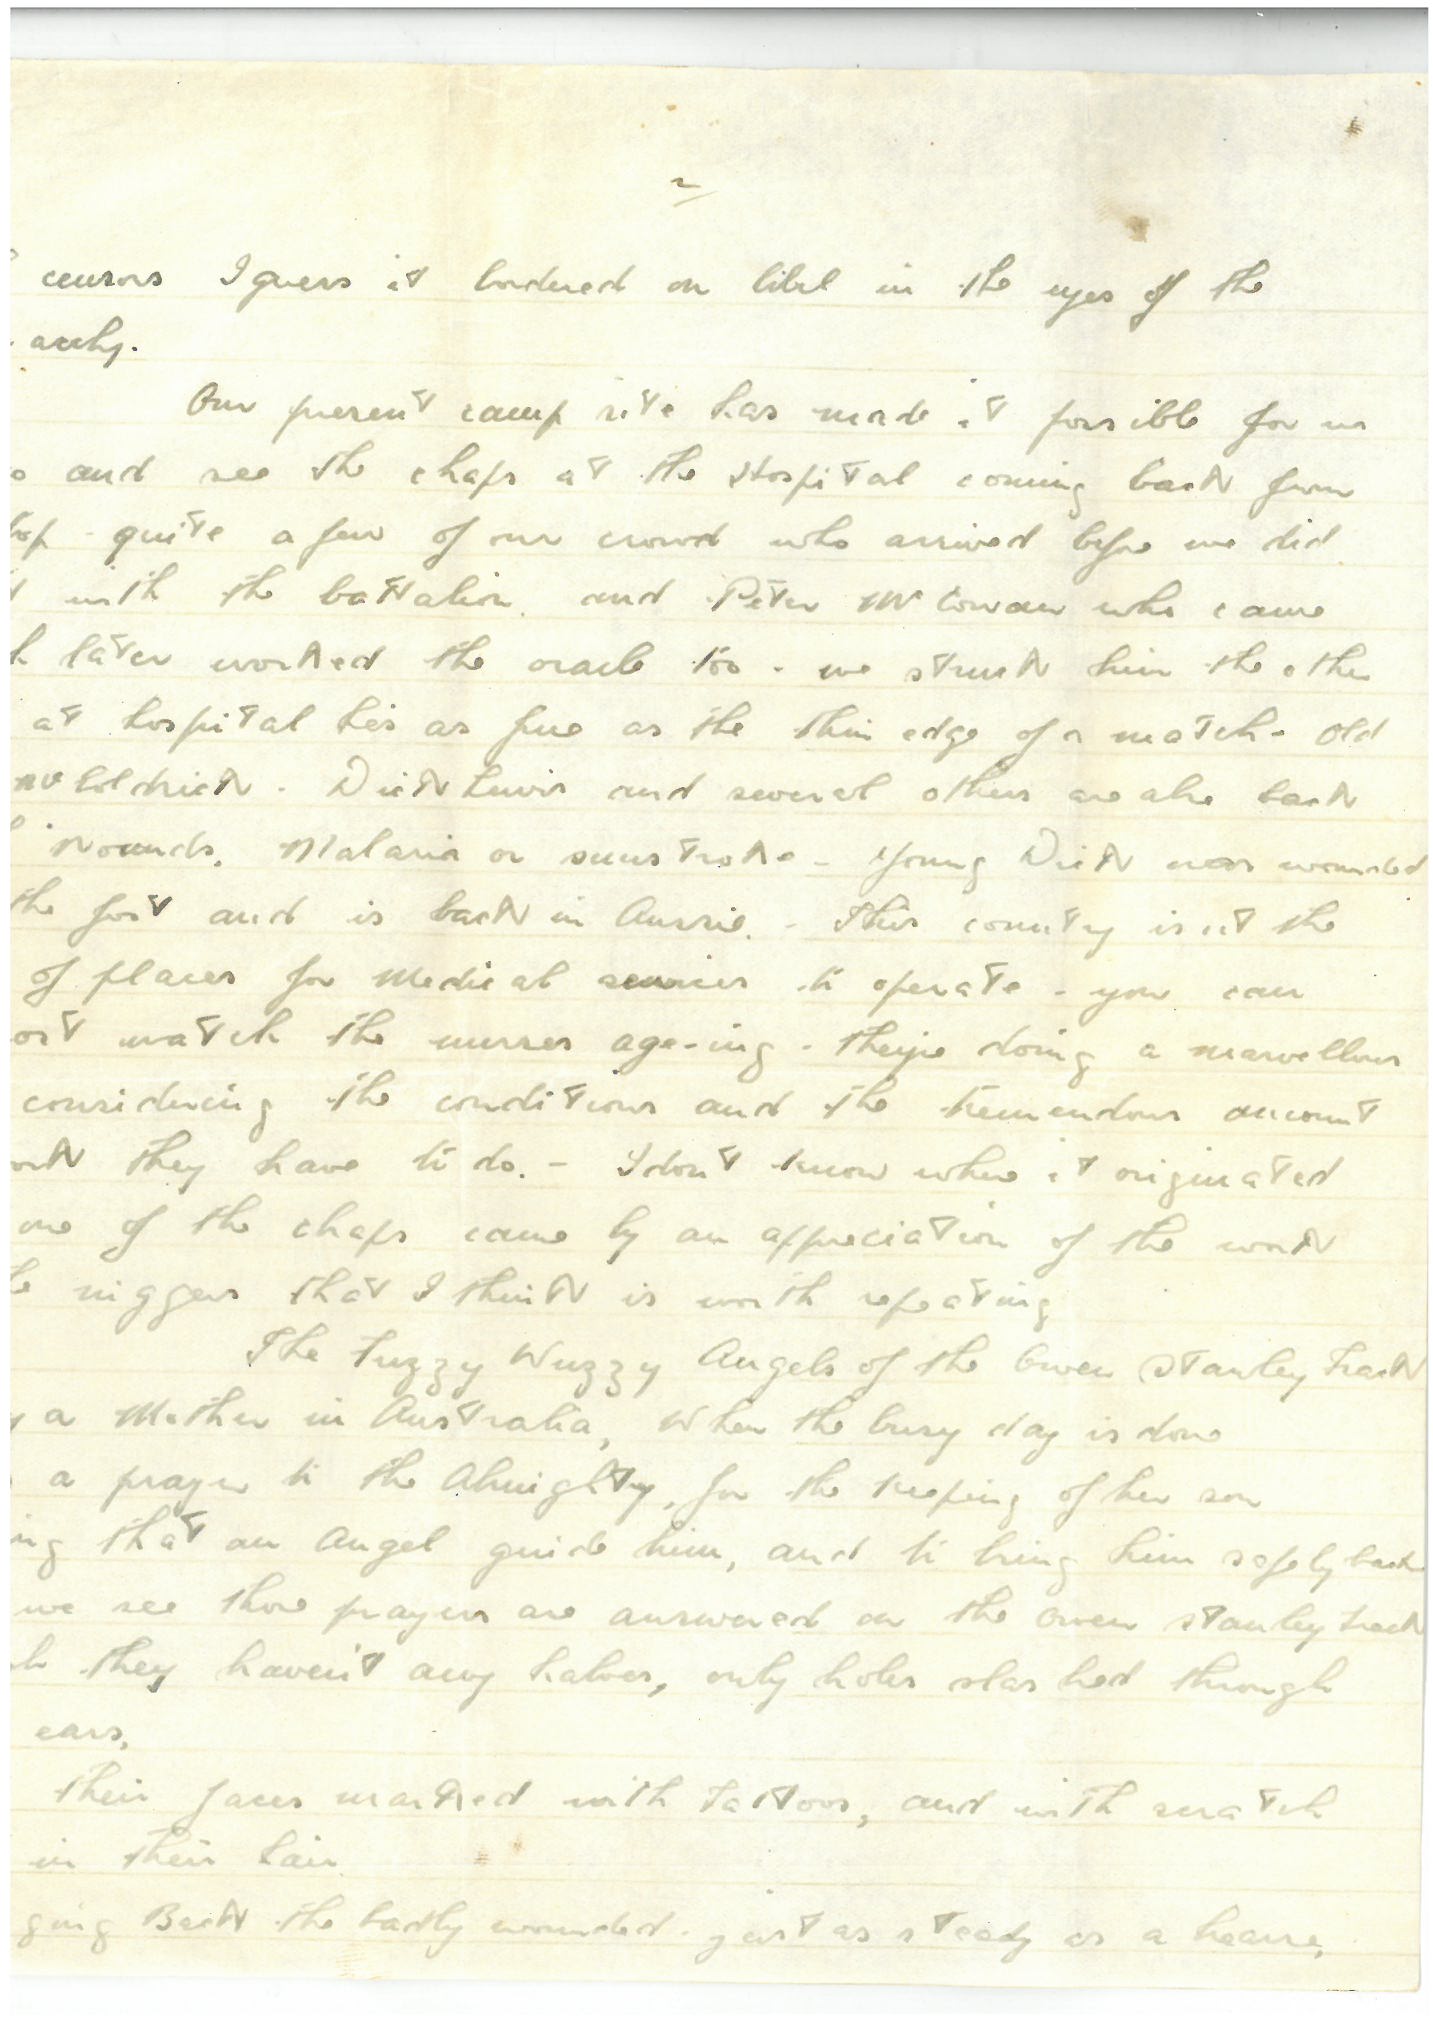 2
censors I guess it bordered on libel in the eyes of the
archy.
Our present camp site has made it possible for us
o and see the chaps at the Hospital coming back from
top - quite a few of our crowd who arrived before we did
with the battalion. and Peter McCowan who came
h later worked the oracle too - we struck him the other
at hospital he's as fine as the thin edge of a match - Old
Dick Lewis and several others are also back
wounds, Malaria or sunstroke - Young Dick was wounded
the foot and is back in Aussie. - This country isn't the
of places for Medical services to operate - you can
ost watch the nurses age-ing - they're doing a marvellous
considering the conditions and the tremendous amount
ork they have to do. - I don't know where it originated
one of the chaps came by an appreciation of the work
e niggers that I think is worth repeating
The Fuzzy Wuzzy Angels of the Owen Stanley track
y a Mother in Australia, When the busy day is done
a prayer to the Almighty, for the keeping of her son
ing that an Angel guide him, and to bring him safely back
we see those prayers are answered on the Owen Stanley track
h they haven't any haloes, only holes slashed through
ears,
their faces marked with tattoos, and with scratch
in their hair
ging Back the badly wounded - just as steady as a hearse,